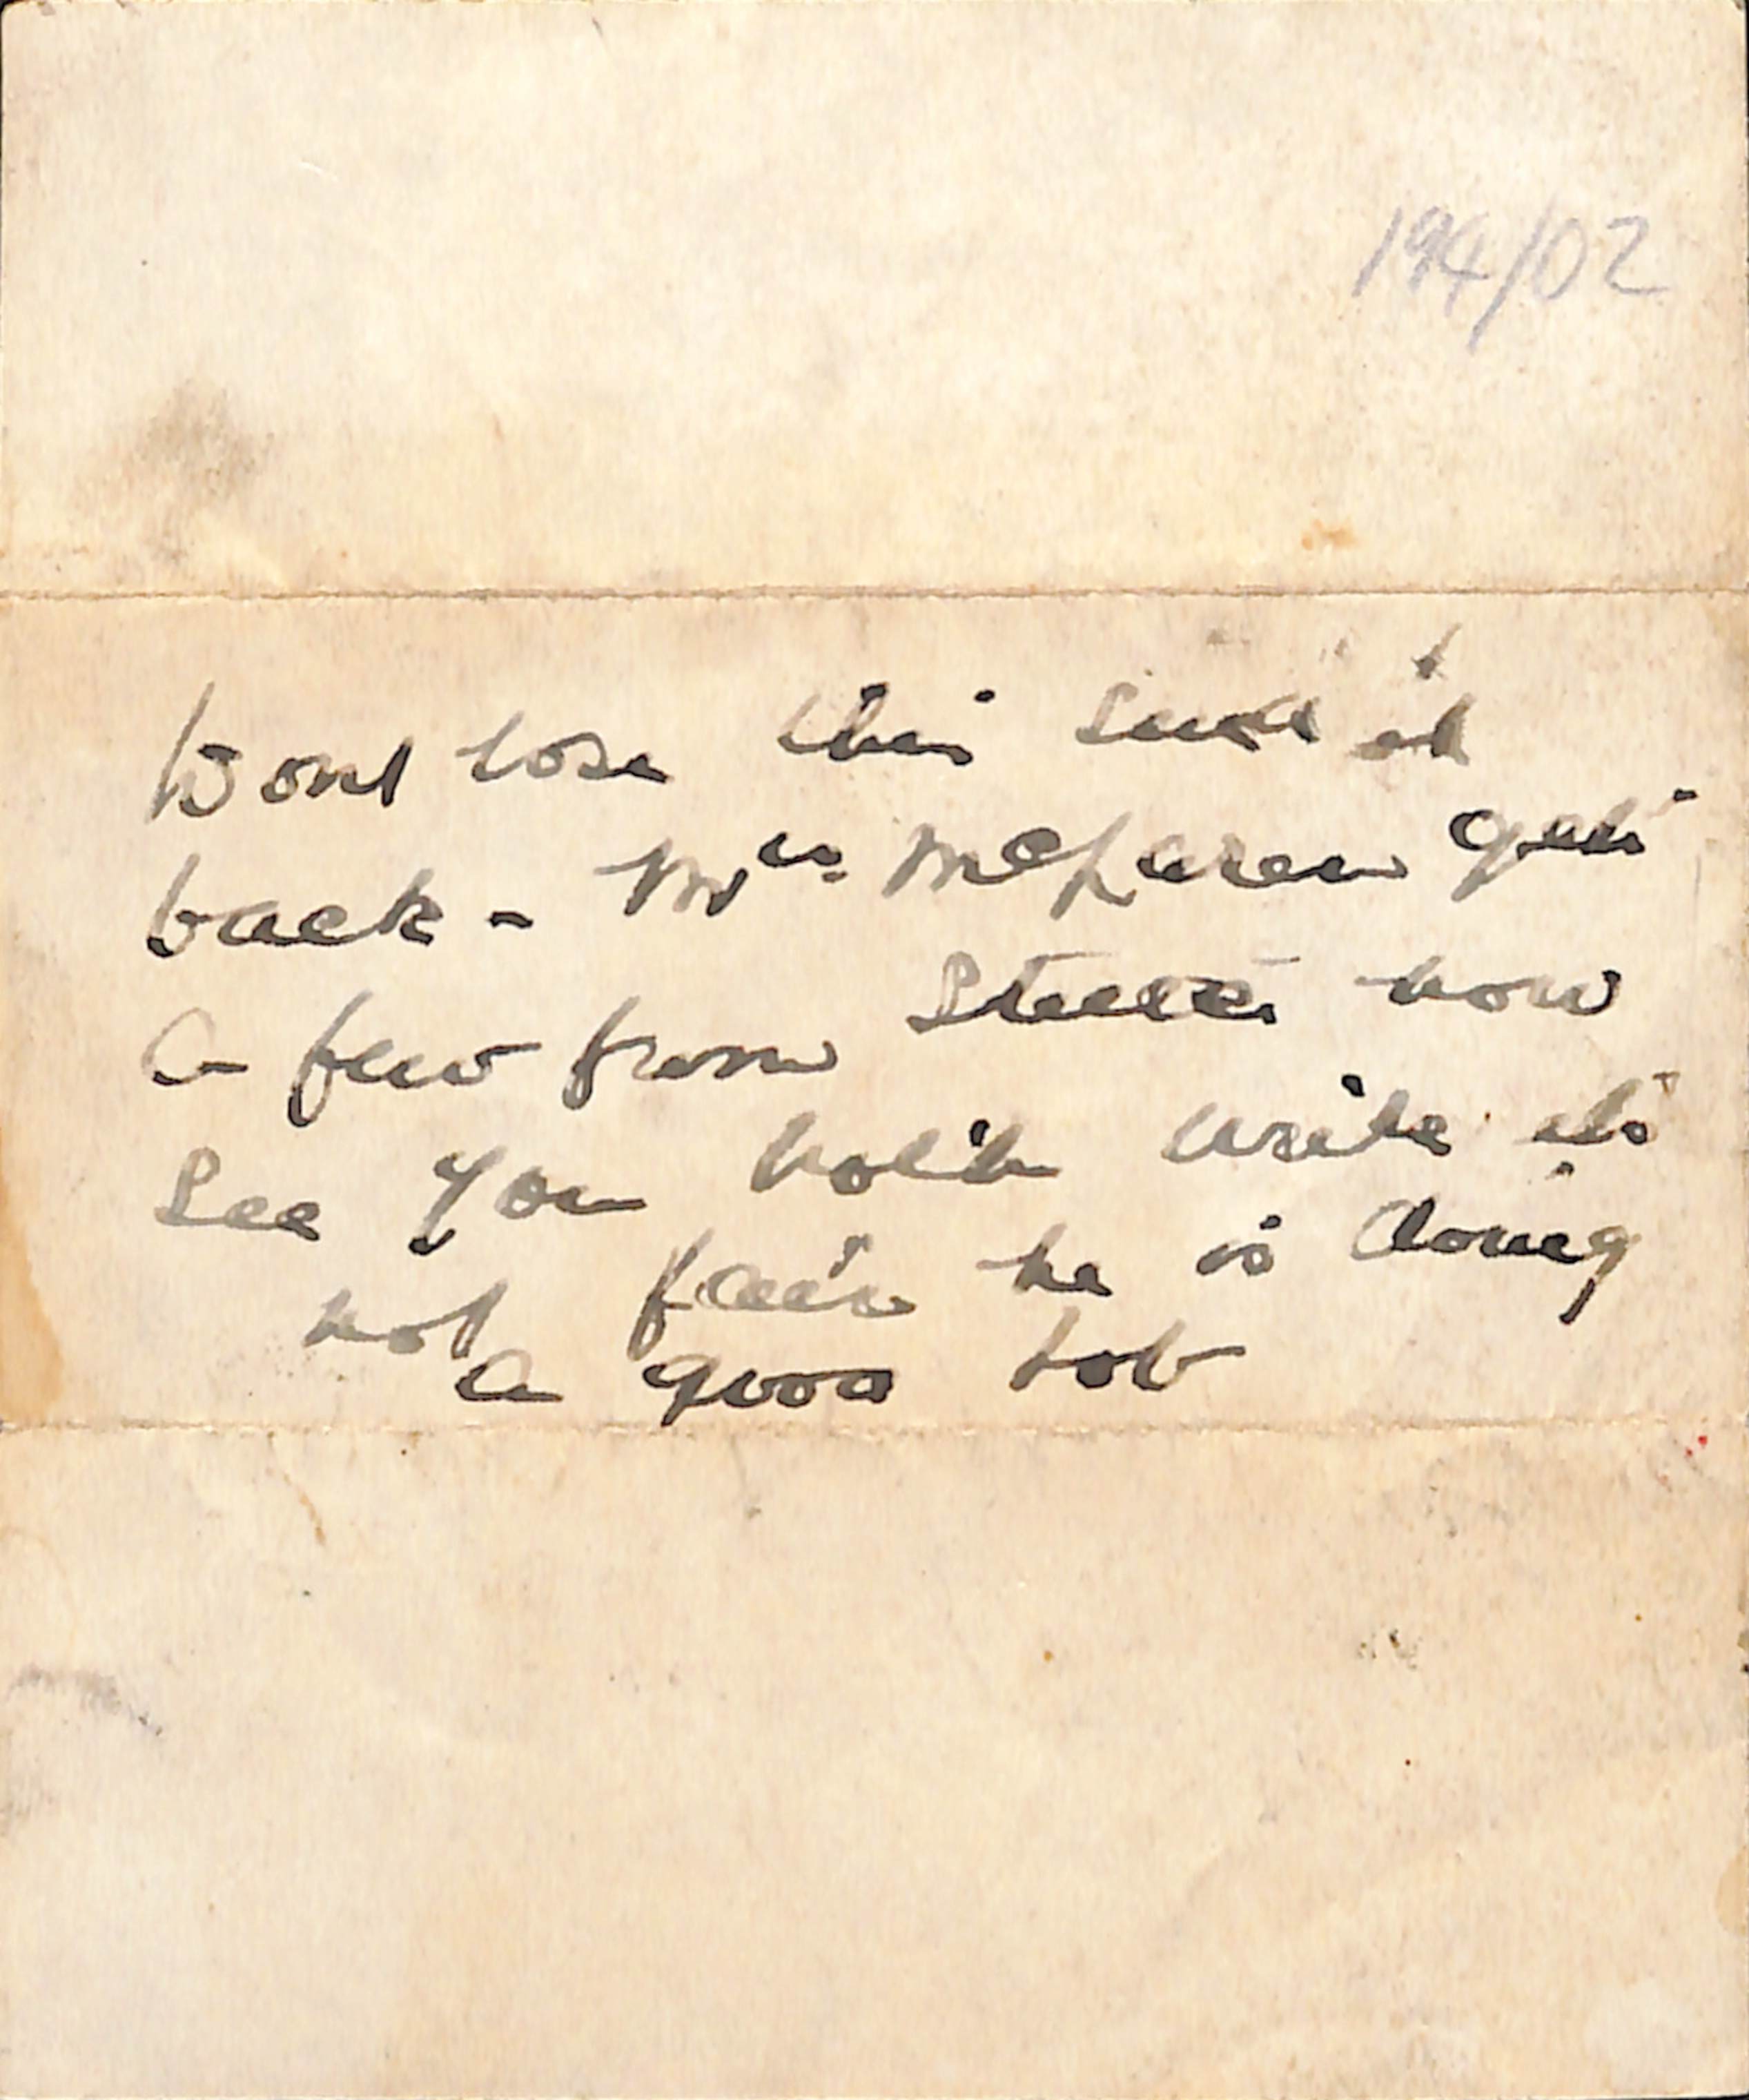 194/02
Dont lose this send it
back - Mrs. McLaren gets
a few from Stettin now
See you both write its
not fair he is doing
a good job